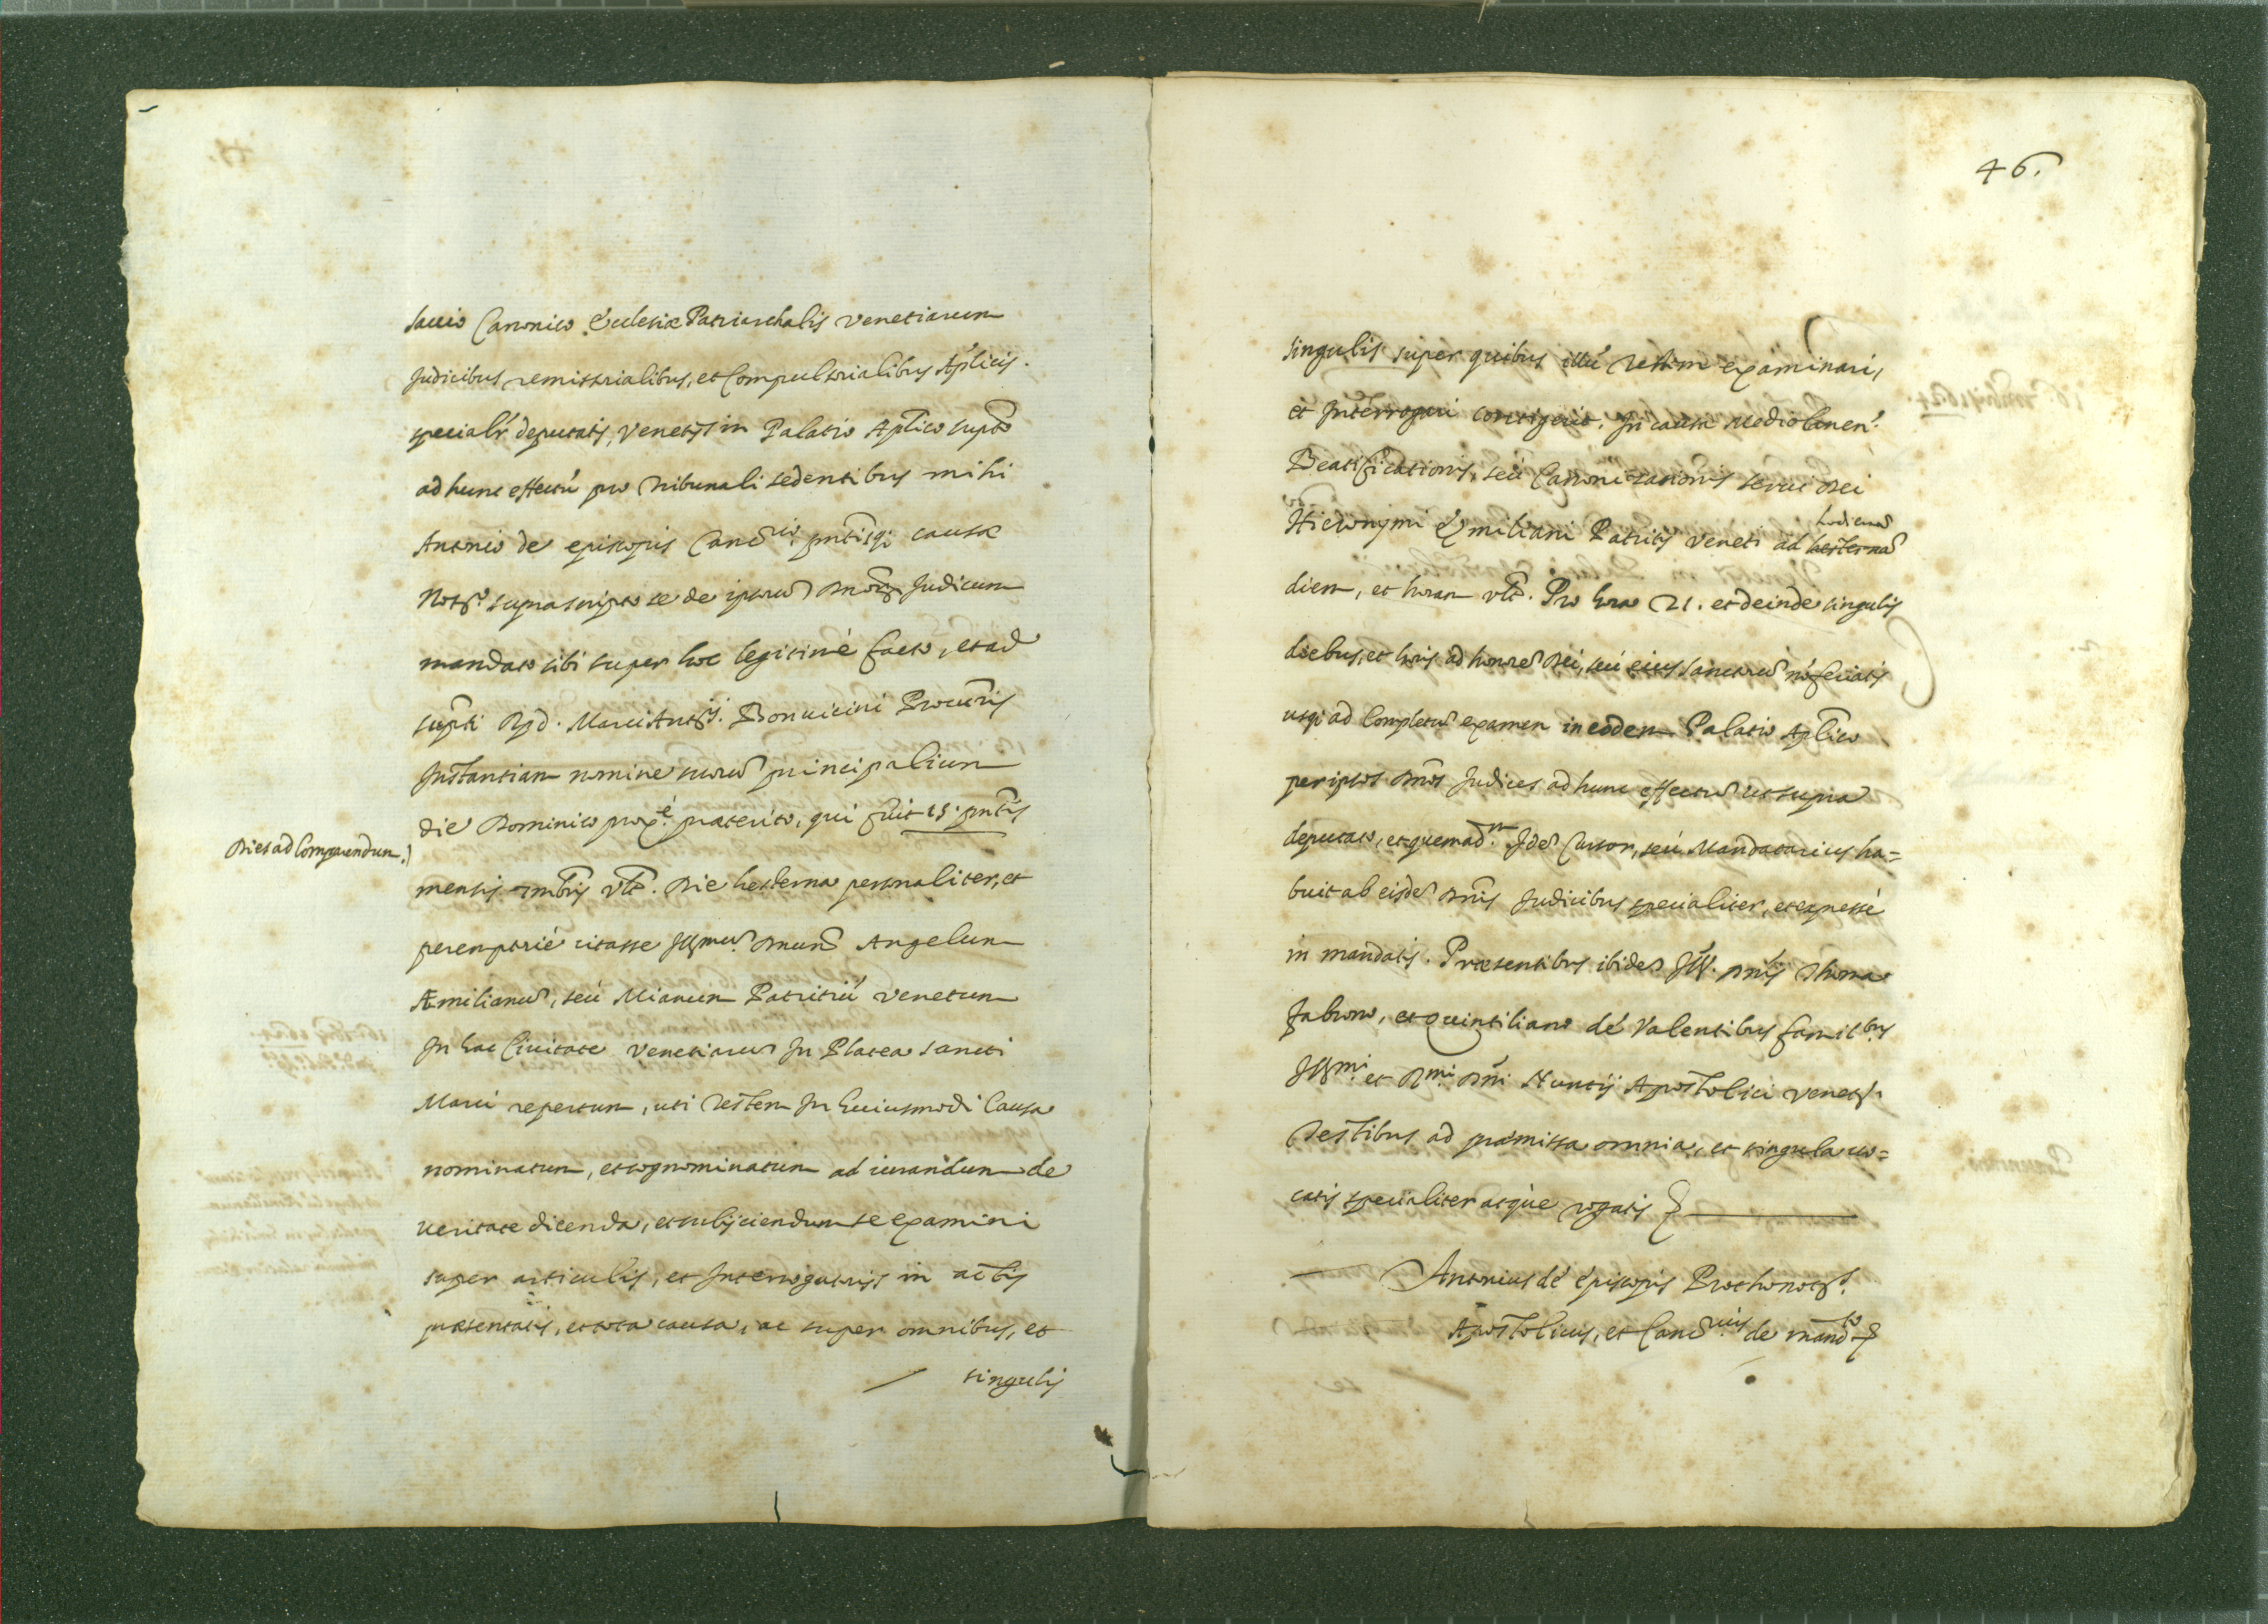 sacrio Canonico Ecclesiæ Patriarchalis Venetiarum
Judicibus remissorialibus, et Compulsorialibus Aplicis.
specialr deputatis, Venetijs in Palatio Aplico supto
ad hunc effectu pro Tribunali sedentibus mihi
Antonio de episcopis Cancrio. pntisq; causæ
Notro suprascripto se de ipsorum Dnorum Judicum
mandato sibi super hoc legitimè facto, et ad
supti Rpd. Marci Antij. Bonuicini Procuris
Instantiam nomine suorum principalium
die Dominico proxe. præterito, qui fuit 15. pntis
Dies ad Comparendum.)
mensis xmbris vlt. Die hesterna personaliter, et
peremptoriè citasse Illmum. Dnum Angelum
Æmilianum, seù Mianum Patritiu Venetum
In hac Ciuitate Venetiarum In Platea Sancti
Marci repertum, uti Testem In huiusmodi Causa
nominatum, et cognominatum ad iurandum de
ueritate dicenda, et subijciendum se examini
super articulis, et Interrogatorijs in actis
præsentatis, et tota causa, ac super omnibus, et
singulis
46.
singulis super quibus illu Testem examinari,
et Interrogari contigerit. In causa Mediolanen.
Beatificationis, seù Canonizationis serui Dei
Hieronymi Æmiliani Patritij Veneti ad hesternam hodiernam
diem, et horam vlt. Pro hora 21. et deinde singulis
diebus, et horis ad honorem Dei, seù eius Sanctorum no feriatis
usq; ad Completum examen in eodem Palatio Aplico
per ipsos Dnos Judices ad hunc effectum ut supra
deputato, et quemadm. Idem Cursor, seù Mandatarius ha=
buit ab eisdem Dnis Judicibus specialiter, et expressè
in mandatis. Præsentibus ibidem Ill. Dnis Thoma
Fabrono, et Quintiliano dé Valentibus familbus
Illmi. et Rmi. Dni Nuntij Apostolici Venetijs.
Testibus ad præmissa omnia, et singula uo=
catis specialiter atque rogatis
Antonius dé épiscopis Prothonots.
Apostolicus, et Cancrius de mandto